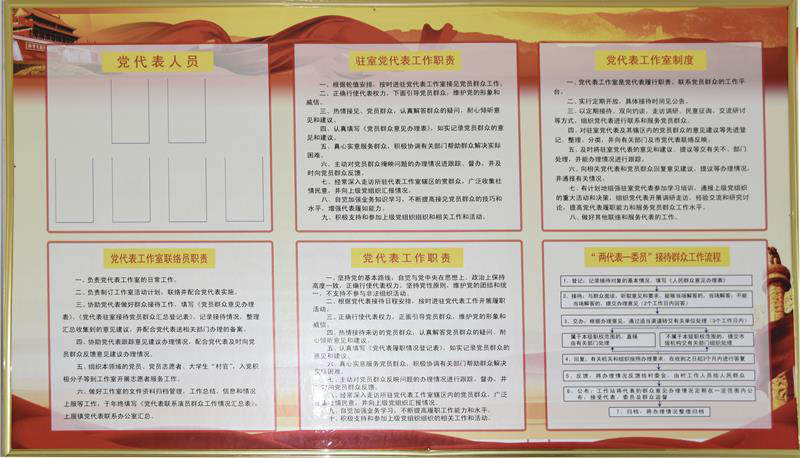 党代表人员
驻室党代表工作职责
一、根据轮值安排，按时进驻党代表工作室接见党员群众工作。
二、正确行使代表权力，下面引导党员群众，维护党的形象和
威信。
三、热情接见、党员群众，认真解答群众的疑问，耐心倾听意
见和建议。
四、认真填写《党员群众意见办理表》，如实记录党员群众的意
见和建议。
五、真心实意服务群众，积极协调有关部门帮助群众解决实际
困难。
六、主动对党员群众掩映问题的办理情况进跟踪、督办，并及
时向党员群众反馈。
七、经常深入走访所驻代表工作室辖区的贯群众，广泛收集社
情民意，并向上级党组织汇报情况。
八、自觉加强业务知识学习，不断提高接见党员群众的技巧和
水平，增强代表履如能力。
九、积极支持和参加上级党组织组织和相关工作和活动。
党代表工作室制度
一、党代表工作室是党代表履行职责、联系党员群众的工作平
台。
二、实行定期开放，具体接待时间见公告。
三、以定期接待、双向约谈、走访调研、民意征询、交流研讨
等方式，组织党代表进行联系和服务党员群众。
四、对驻室党代表及其辖区内的党员群众的意见建议等先进登
记，整理、分类，并向有关部门及市党代表联络反映。
五、及时将驻室党代表的意见和建议、提议等交有关不、部门
处理，并能办理情况进行跟踪。
六、向相关党代表和党员群众回复意见建议、提议等办理情况，
并通报有关情况。
七、有计划地组强驻室党代表参加学习培训，通报上级党组织
的重大活动和决策，组织党代表开展调研走访、经验交流和研究讨
论，提高党代表履职能力和服务党员群众工作水平。
八、做好其他联络和服务代表的工作。
党代表工作室联络员职责
一、负责党代表工作室的日常工作。
二、负责制订工作室活动计划，联络并配合党代表实施。
三、协助党代表做好群众接待工作，填写《党员群众意见办理
表》、《党代表驻室接待党员群众汇总登记表》，记录接待情况，整理
汇总收集到的意见建议，并配合党代表送相关部门办理的备案。
四、协助党代表跟踪意见建议办理情况，配合党代表及时向党
员群众反馈意见建议办理情况。
五、组织本领域的党员、党员志愿者、大学生“村官”、入党积
极分子等到工作室开展志愿者服务工作。
六、做好工作室的文件资料归档管理、工作总结、信息和情况
上服等工作，于年终填写《党代表联系演员群众工作情况汇总表》，
上服镇党代表联系办公室汇总。
党代表工作职责
一、坚持党的基本路线，自觉与党中央在思想上，政治上保持
高度一致，正确行使代表权力，坚持党性原则，维护党的团结和统
一，不支持不参与非法组织活动。
二、根据党代表接待日程安排，按时进驻党代表工作开展履职
活动。
三、正确行使代表权力，正面引导党员群众，维护党的形象和
威信。
四、热情接待来访的党员群众，认真解答党员群众的疑问、耐
心倾听意见和建议。
五、认真填写《党代表履职情况登记表》，如实记录党员群众的
意见和建议。
六、真心实意服务党员群众，积极协调有关部门帮助群众解决
实际困难。
七、主动对党员群众反映问题的办理情况进行跟踪、督办，并
及时向党员群众反馈。
八、经常深入走访所驻党代表工作室辖区内的党员群众，广泛
收集社情民意，并向上级党组织汇报情况。
九、自觉加强业务学习，不断提高履职工作能力和水平。
十、积极支持和参加上级党组织组织的相关工作和活动。
“两代表一委员”接待群众工作流程
1、登记：记录接待对象的基本情况，填写《人民群众意见办理表》
2、接待：与群众面谈，听取意见和要求，能够当场解答的，当场解答；不能
当场解答的，提交办理意见（2个工作日内回答）
3、交办：根据办理意见，通过适当渠道转交有关单位处理（3个工作日内）
属于本级职权范围的，直接
由有关部门处理
不属于本级职权范围的，提交市
级机构交有关部门组织处理
4、回复：有关机关和组织按照办理要求，在收到之日起3个月内进行答复
5、反馈：将办理情况反馈给村委会，由村工作人员给人民群众
6、公布：工作站将代表的群众意见办理情况定期在一定范围内公
布，接受代表、委员及群众监督
7、归档：将办理情况整理归档